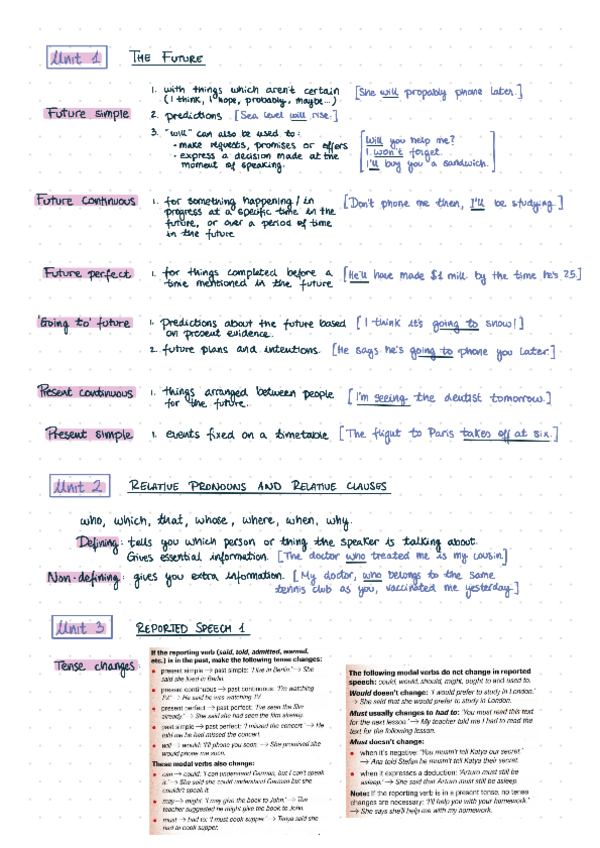 Unit 1 THE FUTURE
Future simple
1. with things which aren't certain
(I think, I hope, probably, maybe...)
[She will propably phone later.]
2. predictions [Sea level will rise.]
3. "will" can also be used to:
- make requests, promises or offers
- express a decision made at the
moment of speaking.
[Will you help me?
I won't forget.
I'll buy you a sandwich.]
Future continuous
1. for something happening / in
progress at a specific time in the
future, or over a period of time
in the future
[Don't phone me then, I'll be studying.]
Future perfect
1. for things completed before a
time mentioned in the future
[He'll have made $1 mill by the time he's 25.]
'Going to' future
1. Predictions about the future based
on present evidence.
[I think it's going to snow!]
2. future plans and intentions. [He says he's going to phone you later.]
Present continuous
1. things arranged between people
for the future.
[I'm seeing the dentist tomorrow.]
Present simple
1. events fixed on a timetable [The fligut to Paris takes off at six.]
Unit 2 RELATIVE PRONOUNS AND RELATIVE CLAUSES
who, which, that, whose, where, when, why.
Defining: tells you which person or thing the speaker is talking about.
Gives essential information. [The doctor who treated me is my cousin]
Non-defining: gives you extra information. [My doctor, who belongs to the same
tennis club as you, vaccinated me yesterday.]
Unit 3 REPORTED SPEECH 1
Tense changes
If the reporting verb (said, told, admitted, warned,
etc.) is in the past, make the following tense changes:
present simple → past simple: 'I live in Berlin.' → She
said she lived in Berlin.
present continuous → past continuous: 'I'm watching
TV.' → He said he was watching TV.
present perfect → past perfect: 'I've seen the film
already.' → She said she had seen the film already.
past simple → past perfect: 'I missed the concert.' → He
told me he had missed the concert.
will → would: 'I'll phone you soon.' → She promised she
would phone me soon.
These modal verbs also change:
can → could: 'I can understand German, but I can't speak
it.' → She said she could understand German but she
couldn't speak it.
may → might: 'I may give the book to John.' → The
teacher suggested he might give the book to John.
must → had to: 'I must cook supper.' → Tanya said she
had to cook supper.
The following modal verbs do not change in reported
speech: could, would, should, might, ought to and used to.
Would doesn't change: 'I would prefer to study in London.'
→ She said that she would prefer to study in London.
Must usually changes to had to: 'You must read this text
for the next lesson.' → My teacher told me I had to read the
text for the following lesson.
Must doesn't change:
when it's negative: 'You mustn't tell Katya our secret.'
→ Ana told Stefan he mustn't tell Katya their secret.
when it expresses a deduction: 'Arturo must still be
asleep.' → She said that Arturo must still be asleep.
Note: If the reporting verb is in a present tense, no tense
changes are necessary: 'I'll help you with your homework.'
→ She says she'll help me with my homework.